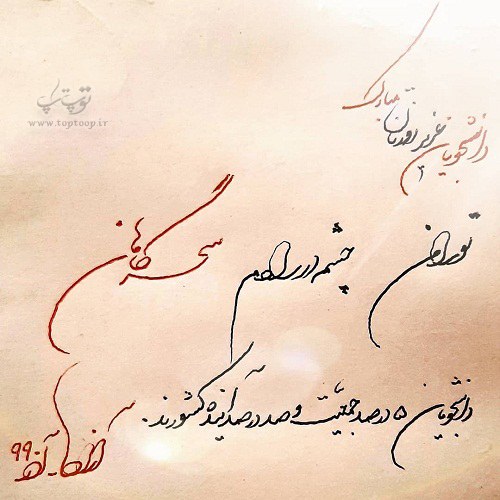 توپ تاپ
www.toptoop.ir
دانشجویان عزیز روزتان مبارک
تو را من چشم در راهم سحرگاهان
دانشجویان ۵ درصد جمعیت و صد درصد آینده کشورند.
۹۹